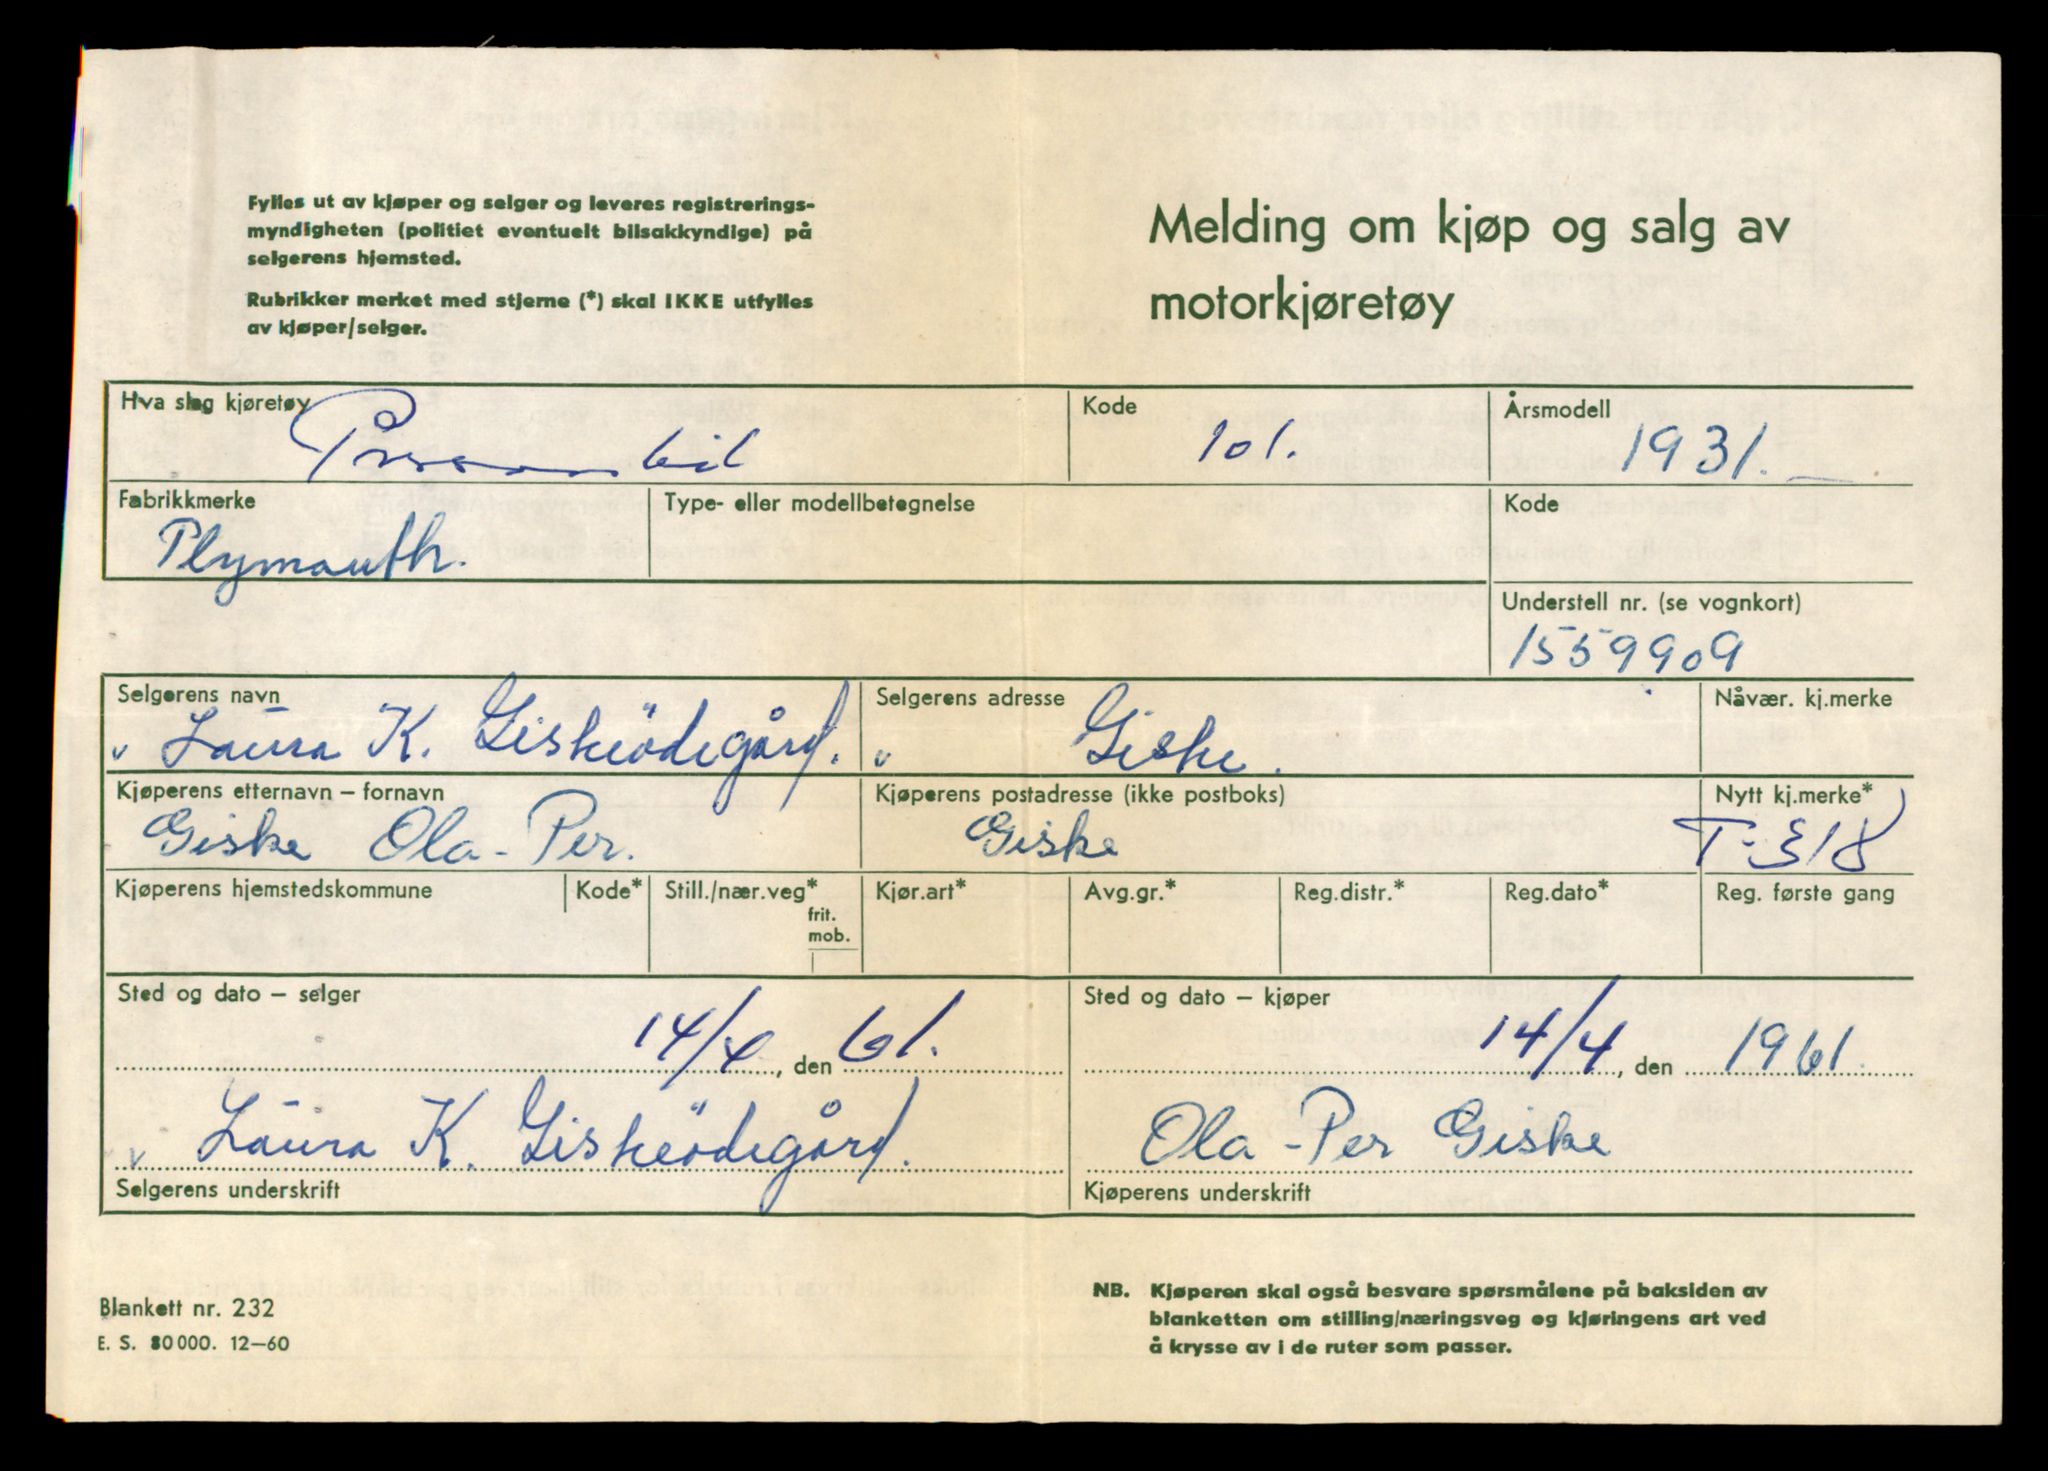 Fylles ut av kjøper og selger og leveres registrerings-
myndigheten (politiet eventuelt bilsakkyndige) på
selgerens hjemsted.
Rubrikker merket med stjerne (*) skal IKKE utfylles
av kjøper/selger.
Melding om kjøp og salg av
motorkjøretøy
Hva slag kjøretøy
Personbil
Kode
101.
Årsmodell
1931.
Fabrikkmerke
Plymouth.
Type- eller modellbetegnelse
Kode
Understell nr. (se vognkort)
1559909
Selgerens navn
Laura K. Giskeödegård.
Selgerens adresse
Giske.
Nåvær. kj.merke
Kjøperens etternavn – fornavn
Giske Ola-Per.
Kjøperens postadresse (ikke postboks)
Giske
Nytt kj.merke*
T-318
Kjøperens hjemstedskommune
Kode*
Still./nær.veg*
frit.
mob.
Kjør.art*
Avg.gr.*
Reg.distr.*
Reg.dato*
Reg. første gang
Sted og dato – selger
14/4, den 61.
Laura K. Giskeödegård.
Selgerens underskrift
Sted og dato – kjøper
14/4, den 1961.
Ola-Per Giske
Kjøperens underskrift
Blankett nr. 232
E. S. 80000. 12–60
NB. Kjøperen skal også besvare spørsmålene på baksiden av
blanketten om stilling/næringsveg og kjøringens art ved
å krysse av i de ruter som passer.